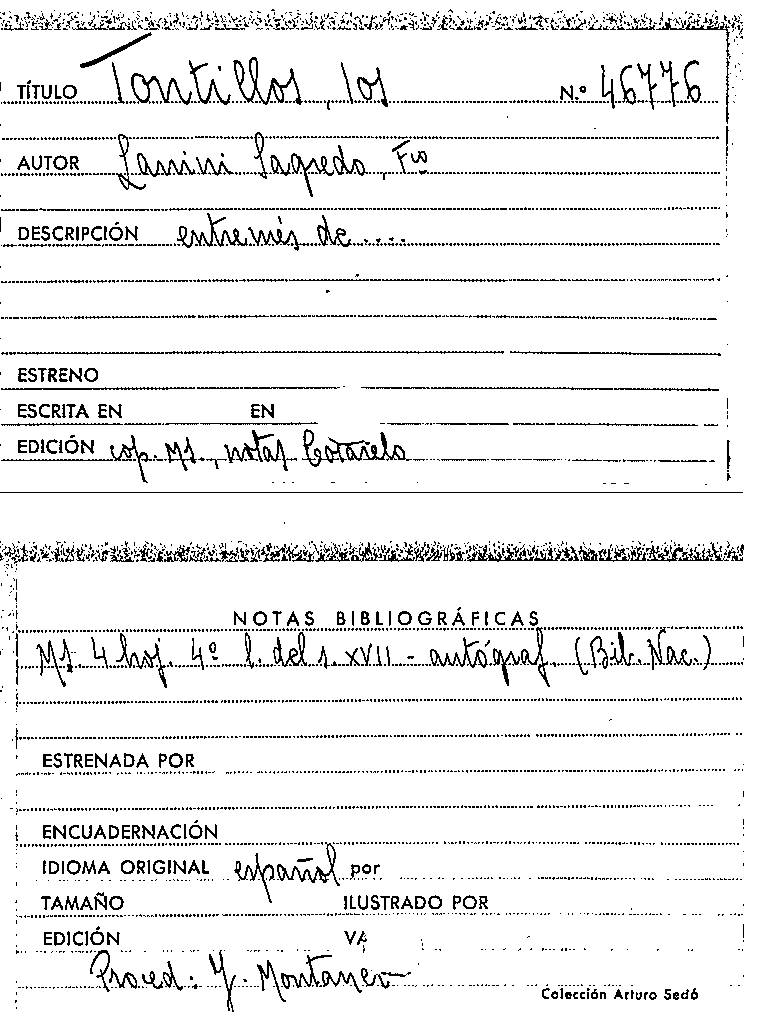 TÍTULO Tontillos, los N.º 46776
AUTOR Lanini Sagredo, Fco
DESCRIPCIÓN entremés de ....
ESTRENO
ESCRITA EN EN
EDICIÓN cop. Ms., notas Cotarelo
NOTAS BIBLIOGRÁFICAS
Ms. 4 hoj. 4º l. del s. XVII - autógraf. (Bib. Nac.)
ESTRENADA POR
ENCUADERNACIÓN
IDIOMA ORIGINAL español por
TAMAÑO ILUSTRADO POR
EDICIÓN
Proced: Y. Montaner
Colección Arturo Sedó